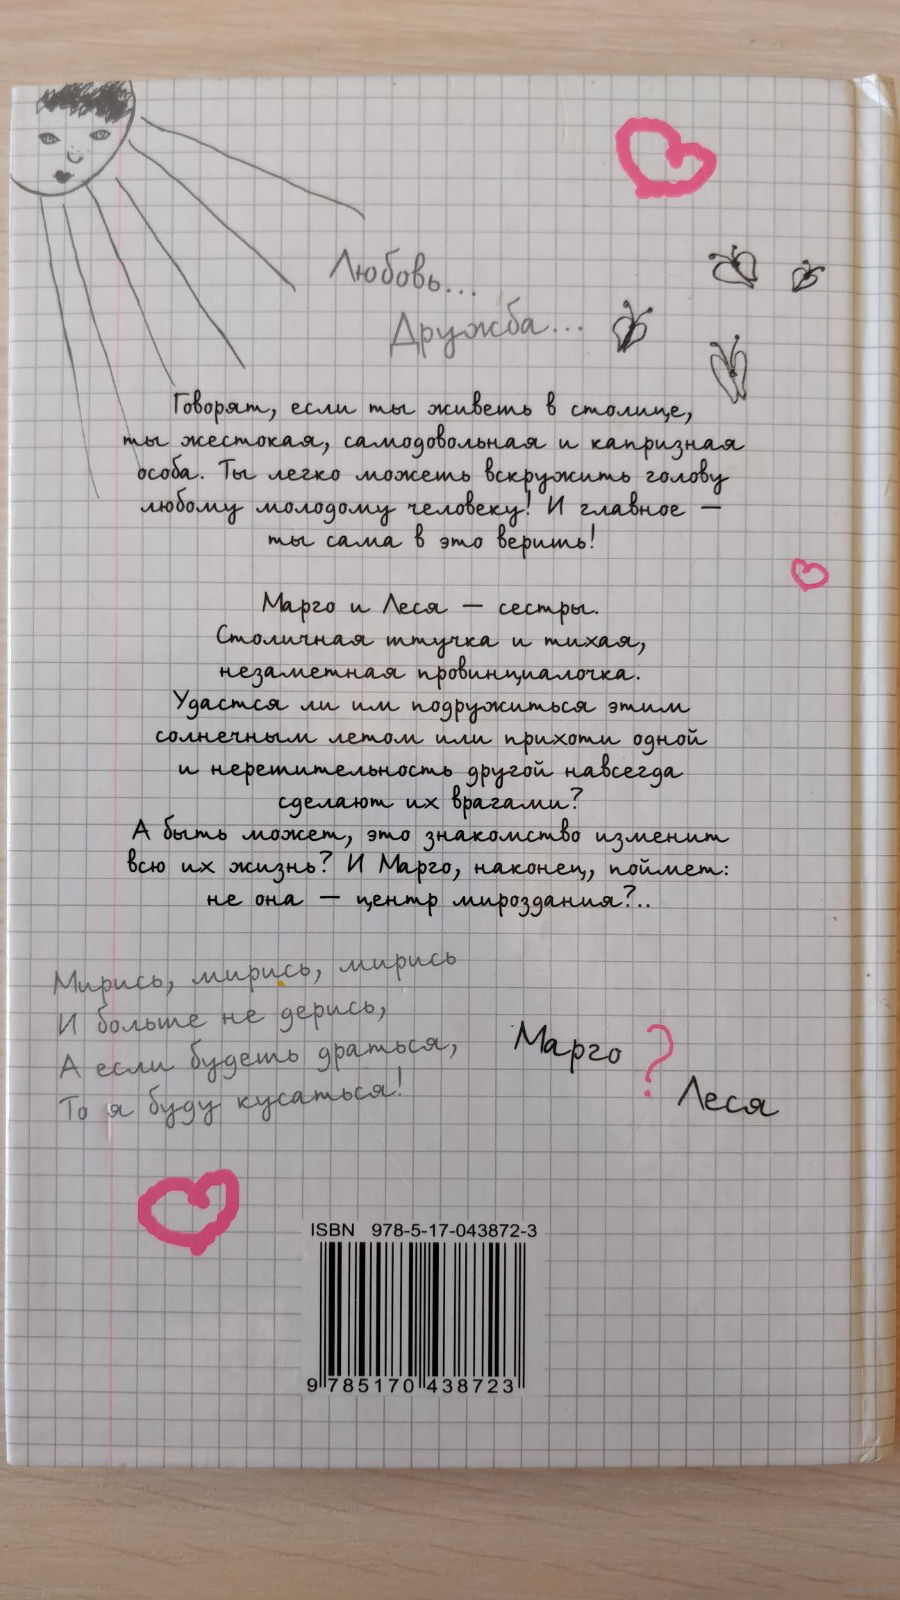 Любовь...
Дружба...
Говорят, если ты живешь в столице,
ты жестокая, самодовольная и капризная
особа. Ты легко можешь вскружить голову
любому молодому человеку! И главное —
ты сама в это веришь!
Марго и Леся — сестры.
Столичная штучка и тихая,
незаметная провинциалочка.
Удастся ли им подружиться этим
солнечным летом или прихоти одной
и нерешительность другой навсегда
сделают их врагами?
А быть может, это знакомство изменит
всю их жизнь? И Марго, наконец, поймет:
не она — центр мироздания?..
Мирись, мирись, мирись
И больше не дерись,
А если будешь драться,
То я буду кусаться!
Марго ?
Леся
ISBN 978-5-17-043872-3
9 785170 438723